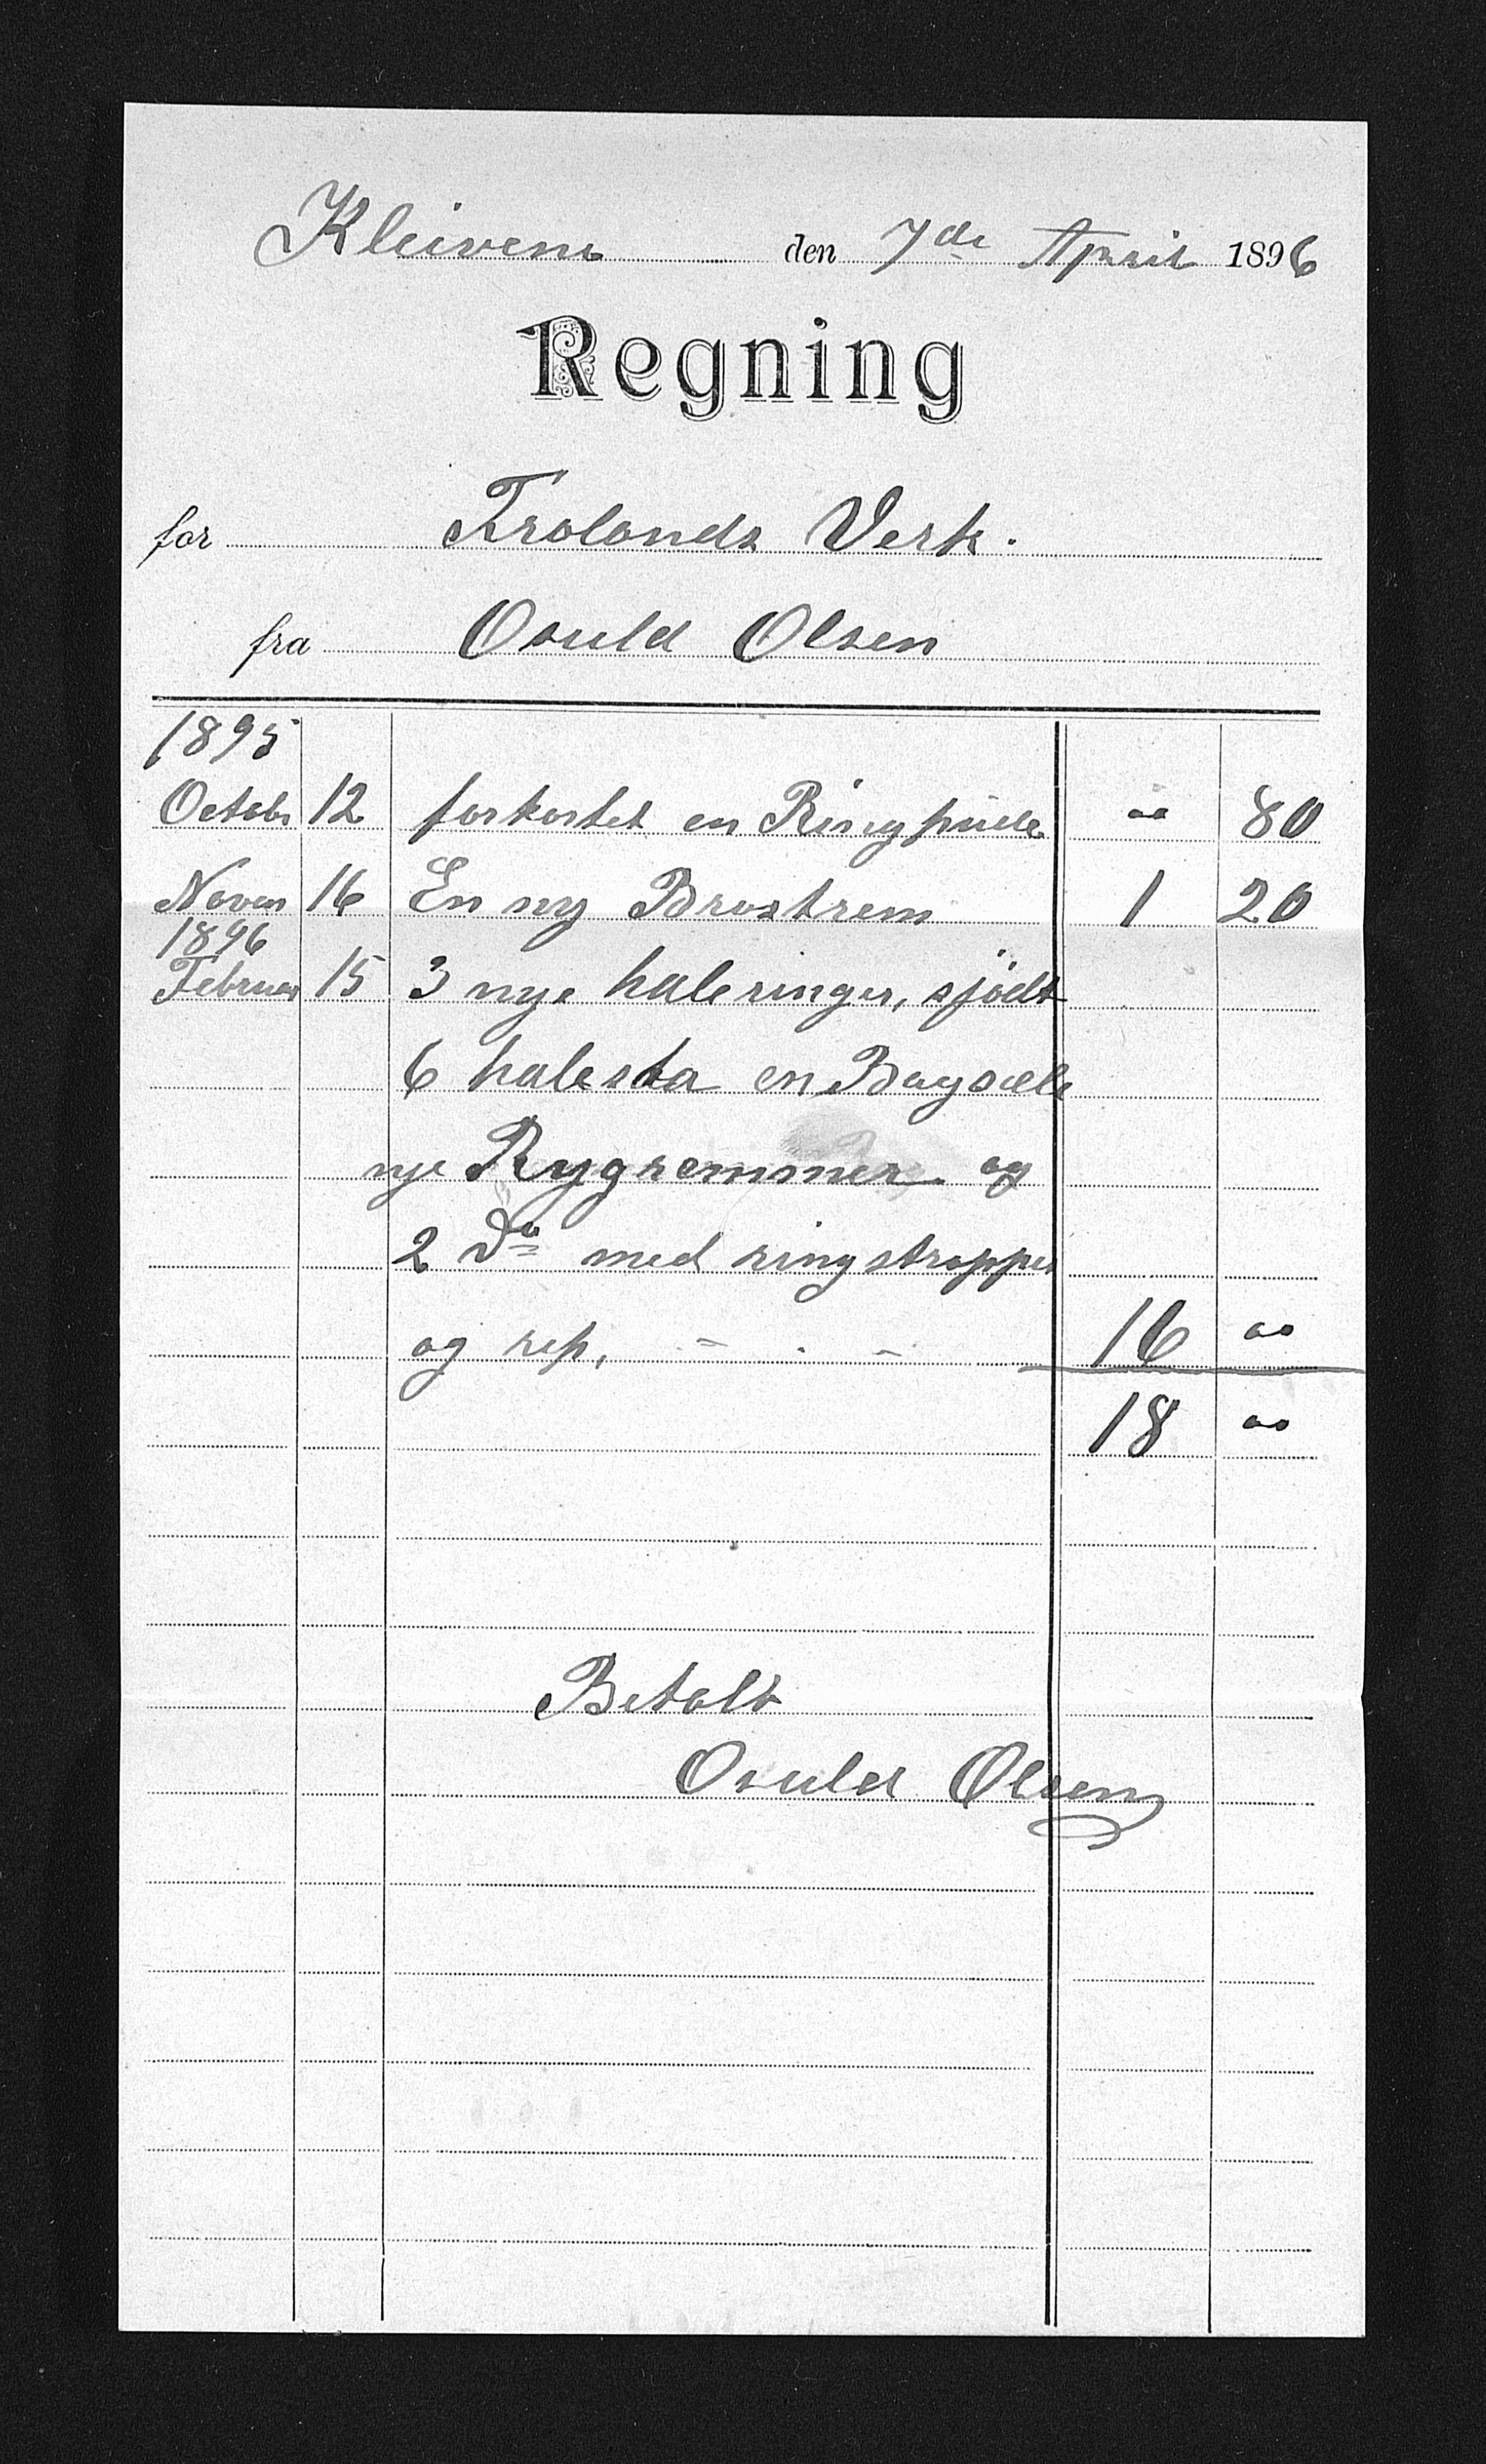 Kleivene den 7de April 1896
Regning
for Frolands Verk.
fra Osuld Olsen
1895
Octobr 12 forkortet en Ringpude " 80
Novem 16 En ny Brostrem 1 20
1896
Februar 15 3 nye haleringer, sjödt
6 halesta en Bagsele
nye Rygremmer og
2 Do med ringstropper
og rep, - . - 16 "
18 "
Betalt
Osuld Olsen